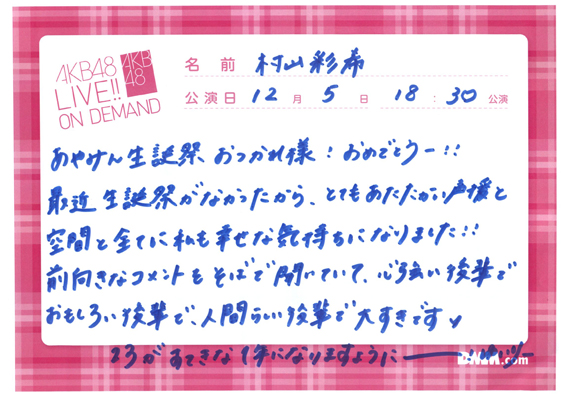 AKB48
LIVE!!
ON DEMAND
AKB
48
名前 村山彩希
公演日 12月 5日 18:30公演
あやみん生誕祭、おつかれ様!おめでとうー!!
最近 生誕祭がなかったから、とてもあたたかい声援と
空間と全てに私も幸せな気持ちになりました!!
前向きなコメントもそばで聞いていて、心強い後輩で
おもしろい後輩で、人間らしい後輩で大すきです
23がすてきな1年になりますように
DMM.com